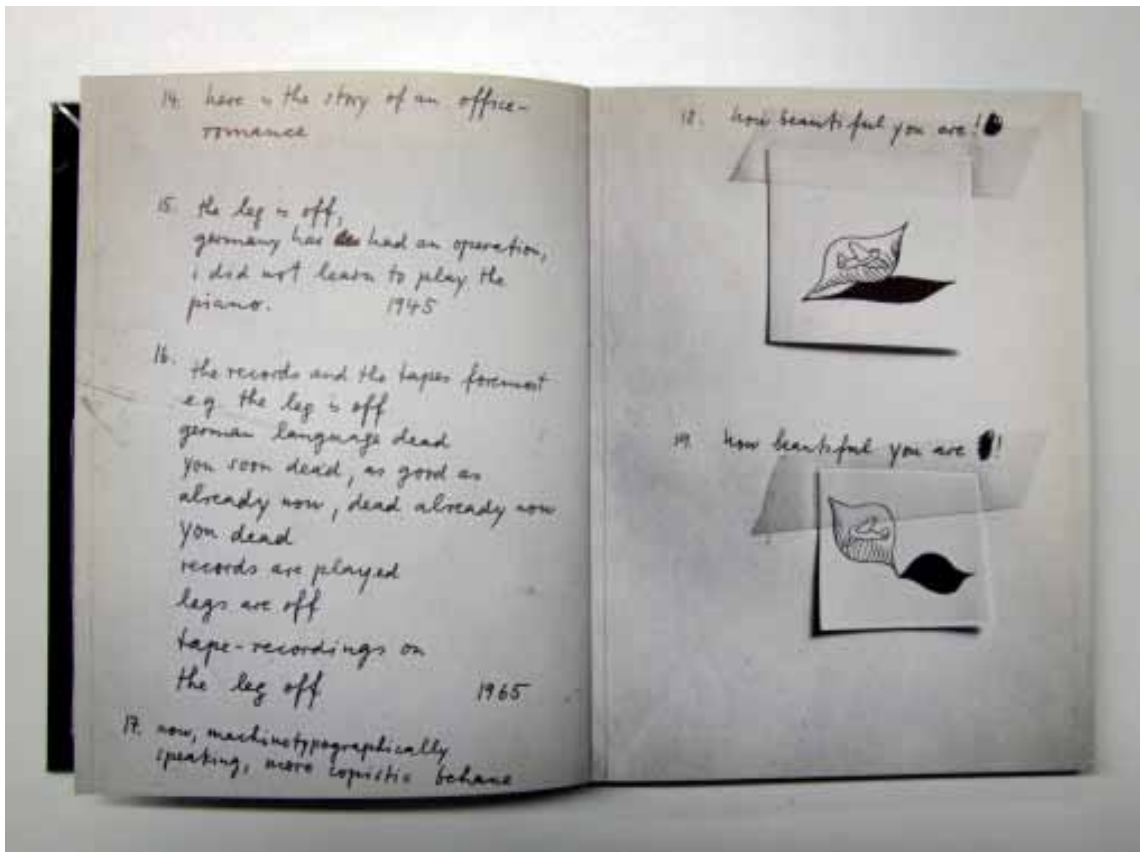 14. here is the story of an office-
romance
15. the leg is off,
germany has had an operation,
i did not learn to play the
piano. 1945
16. the records and the tapes foremost
e.g. the leg is off
german language dead
you soon dead, as good as
already now, dead already now
you dead
records are played
legs are off
tape-recordings on
the leg off 1965
17. now, machinotypographically
speaking, more copistic behave
18. how beautiful you are!
19. how beautiful you are !